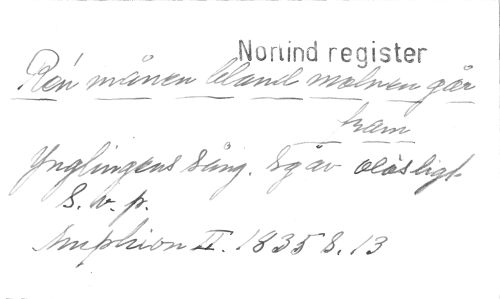 Norlind register
Re'n månen bland molnen går
fram
Ynglingens sång. Sgåv oläsligt
S. v. p.
Amphion II. 1835 s. 13